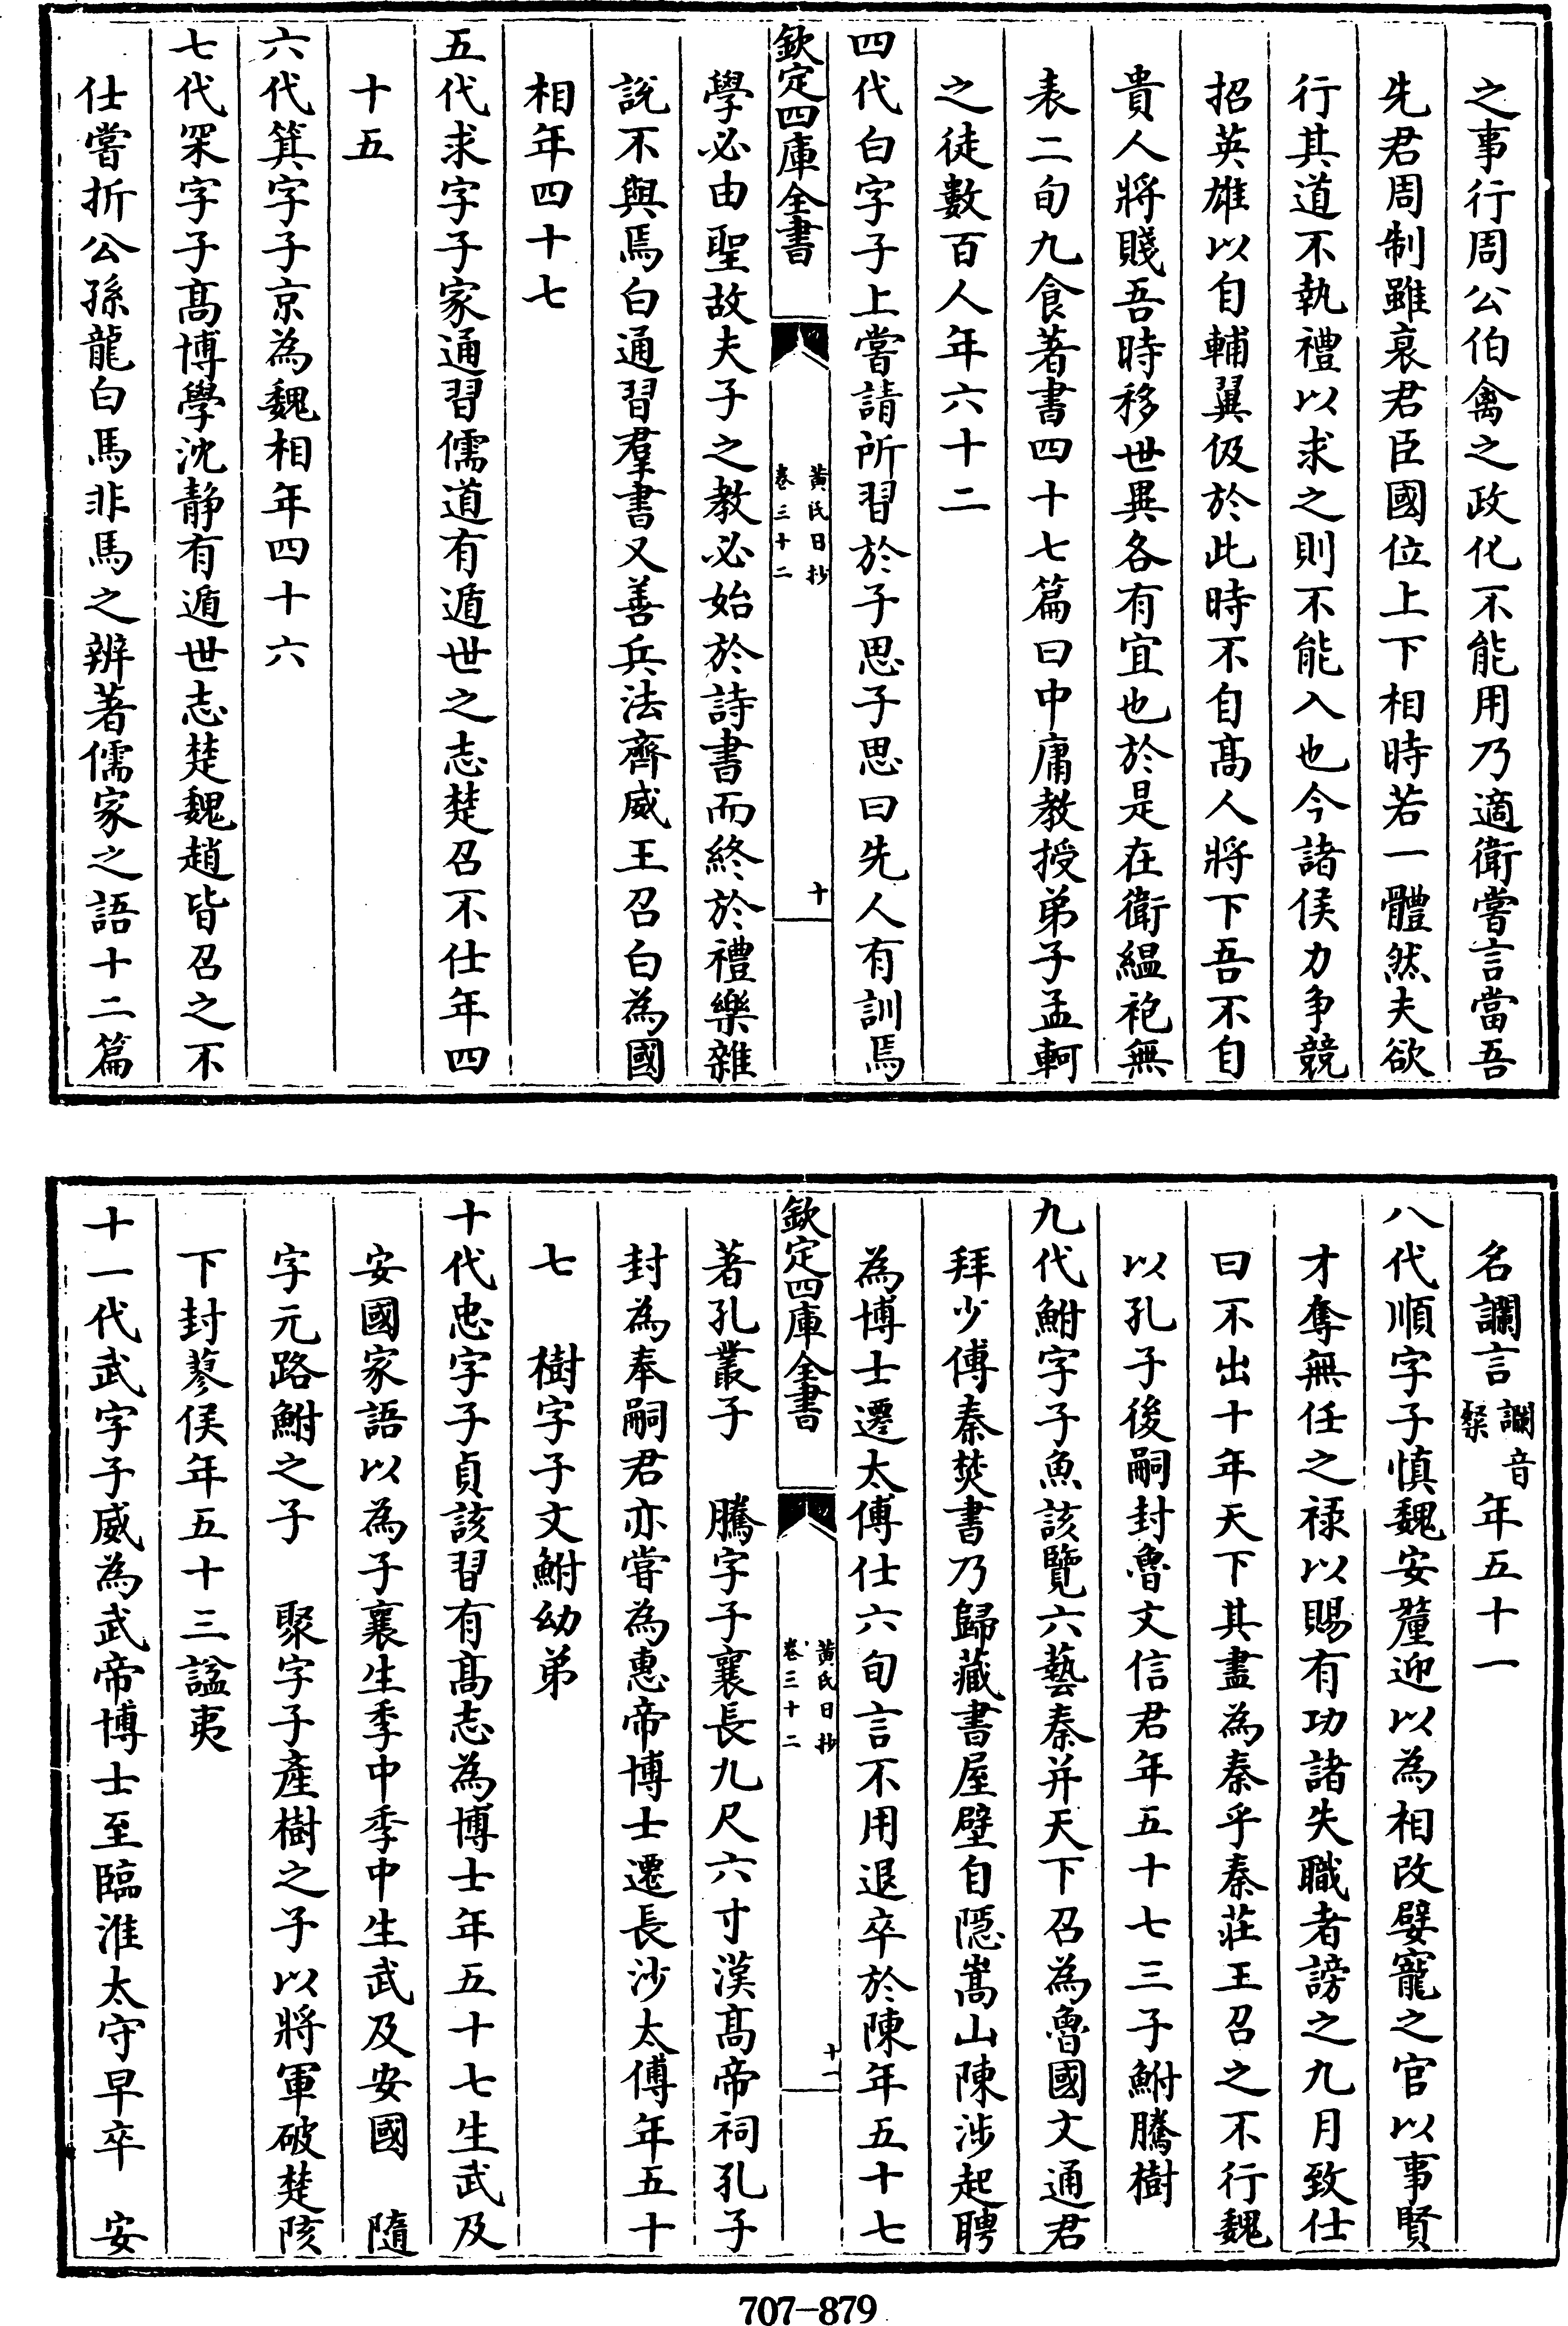 之事行周公伯禽之政化不能用乃適衛嘗言當吾
先君周制雖衰君臣國位上下相時若一體然夫欲
行其道不執禮以求之則不能入也今諸侯力争競
招英雄以自輔翼伋於此時不自髙人將下吾不自
貴人將賤吾時移世異各有宜也於是在衛緼袍無
表二旬九食著書四十七篇曰中庸教授弟子孟軻
之徒數百人年六十二
四代白字子上嘗請所習於子思子思曰先人有訓焉
欽定四庫全書
黄氏日抄
卷三十二
十
學必由聖故夫子之教必始於詩書而終於禮樂雜
說不與焉白通習羣書又善兵法齊威王召白為國
相年四十七
五代求字子家通習儒道有遁世之志楚召不仕年四
十五
六代箕字子京為魏相年四十六
七代罙字子髙博學沈静有遁世志楚魏趙皆召之不
仕嘗折公孫龍白馬非馬之辨著儒家之語十二篇
名讕言
讕音
粲
年五十一
八代順字子慎魏安釐迎以為相改嬖寵之官以事賢
才奪無任之禄以賜有功諸失職者謗之九月致仕
曰不出十年天下其盡為秦乎秦莊王召之不行魏
以孔子後嗣封魯文信君年五十七三子鮒騰樹
九代鮒字子魚該覽六藝秦并天下召為魯國文通君
拜少傅秦焚書乃歸藏書屋壁自隱嵩山陳涉起聘
為博士遷太傅仕六旬言不用退卒於陳年五十七
欽定四庫全書
黄氏日抄
卷三十二
十一
著孔叢子 騰字子襄長九尺六寸漢髙帝祠孔子
封為奉嗣君亦嘗為惠帝博士遷長沙太傅年五十
七 樹字子文鮒幼弟
十代忠字子貞該習有髙志為博士年五十七生武及
安國家語以為子襄生季中季中生武及安國 隨
字元路鮒之子 聚字子產樹之子以將軍破楚陔
下封蓼侯年五十三諡夷
十一代武字子威為武帝博士至臨淮太守早卒 安
707-879